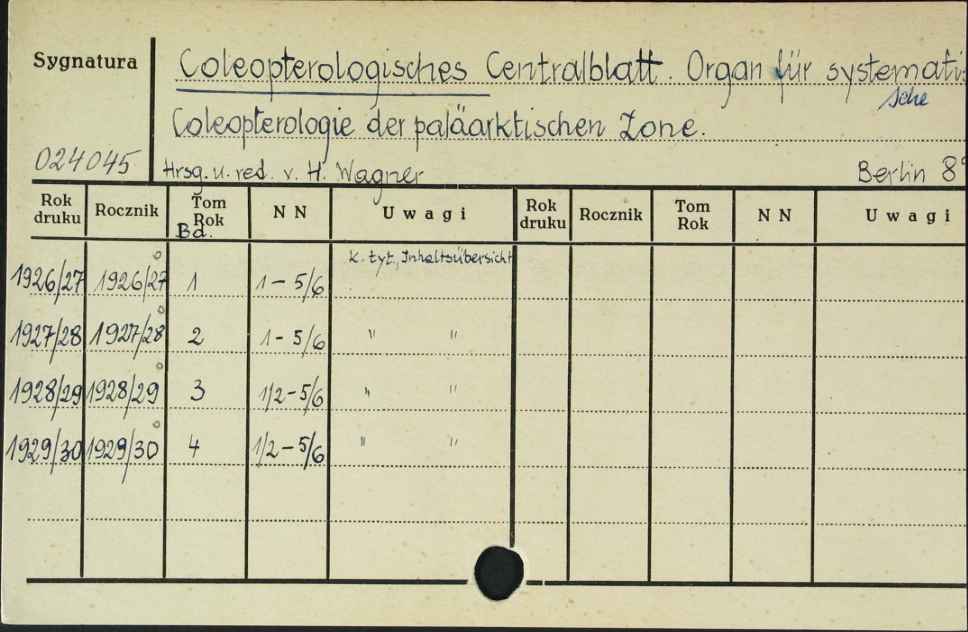 Sygnatura
Coleopterologisches Centralblatt. Organ für systemati
sche
Coleopterologie der paläarktischen Zone.
024045
Hrsg. u. red. v. H. Wagner Berlin 8°
Rok druku Rocznik Tom Rok Bd. N N Uwagi Rok druku Rocznik Tom Rok N N Uwagi
1926/27 1926/27° 1 1 - 5/6 k. tyt, Inhaltsübersicht
1927/28 1927/28° 2 1 - 5/6 " "
1928/29 1928/29° 3 1/2 - 5/6 " "
1929/30 1929/30° 4 1/2 - 5/6 " "